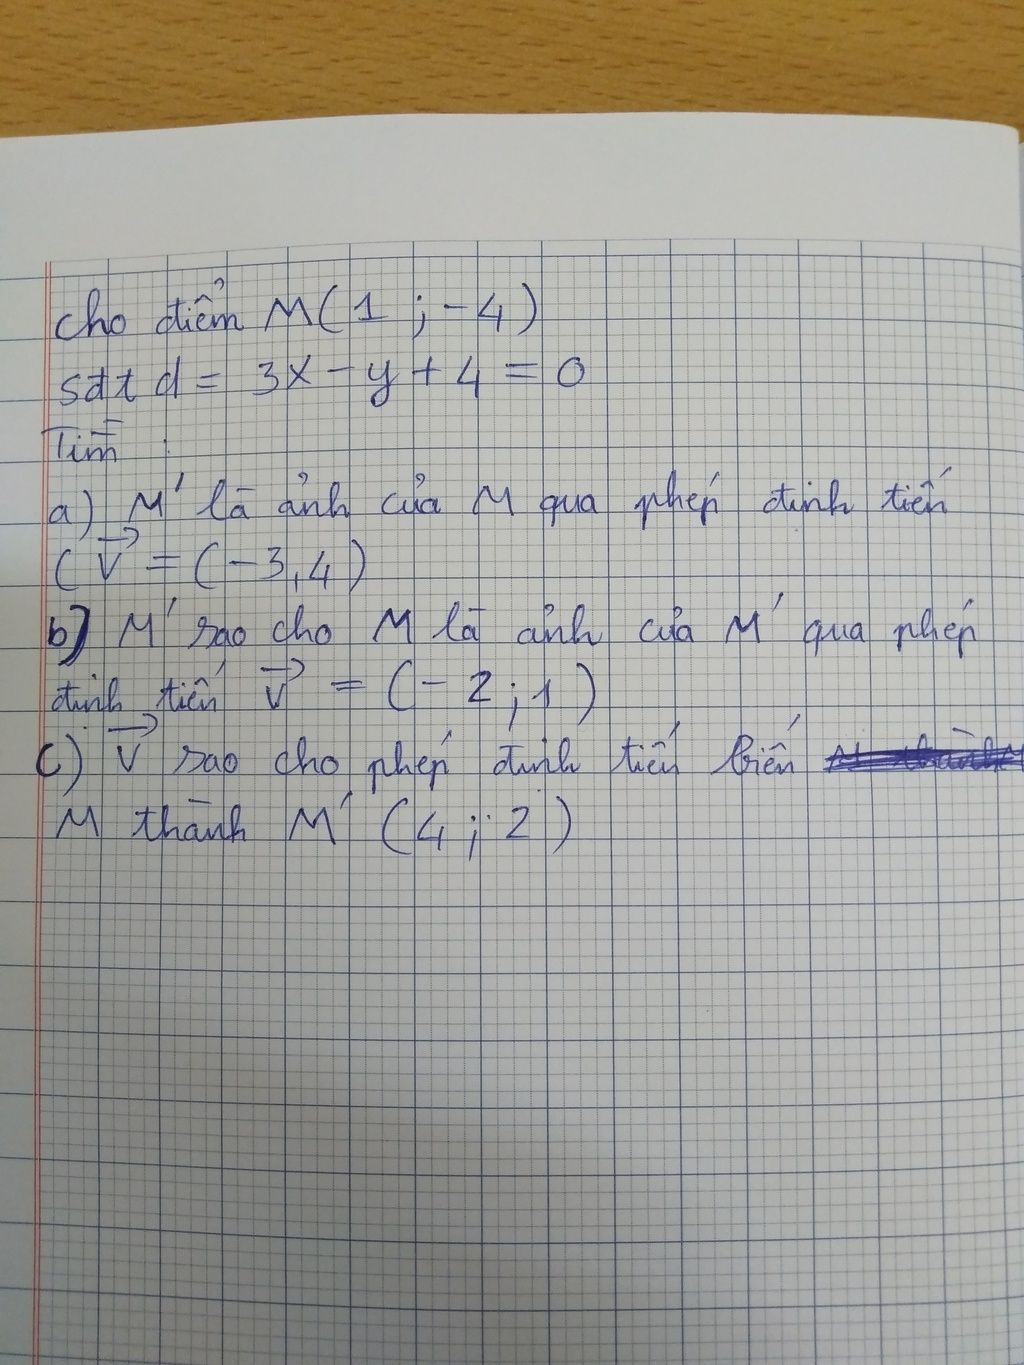 Cho điểm M(1 ; -4)
sđt d = 3x - y + 4 = 0
Tìm :
a) M' là ảnh của M qua phép định tiến
( v⃗ = (-3,4)
b) M' sao cho M là ảnh của M' qua phép
định tiến v⃗ = (-2 ; 1)
c) v⃗ sao cho phép định tiến biến
M thành M' (4 ; 2)